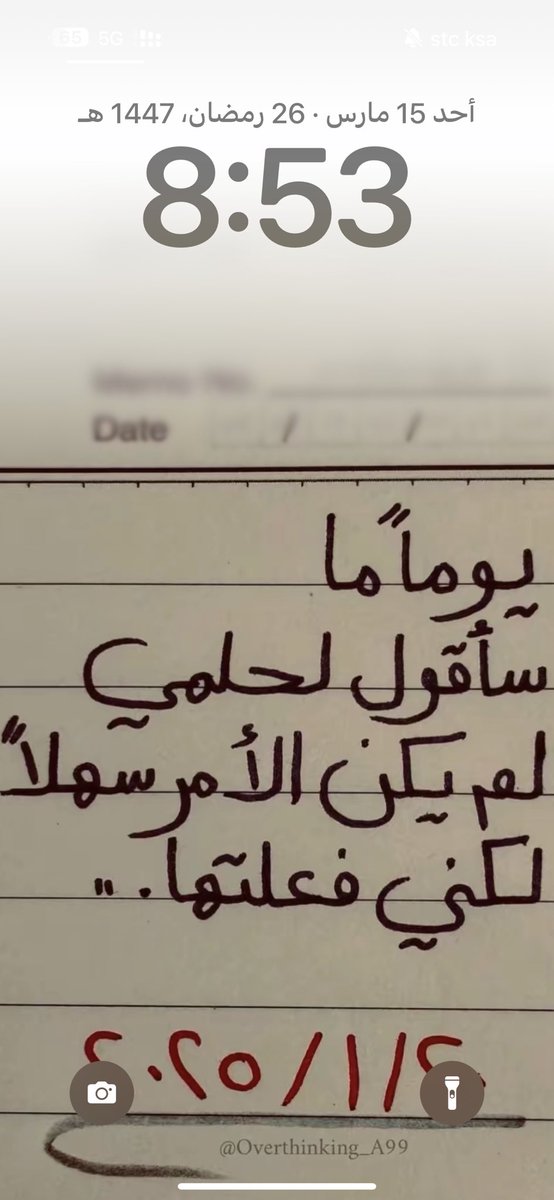 stc ksa 5G 65
أحد 15 مارس · 26 رمضان، 1447 هـ
8:53
Memo No.
Date / /
يوماً ما
سأقول لحلمي
لم يكن الأمر سهلاً
لكني فعلتها . ..
٢٠٢٥/١/٢٠
@Overthinking_A99